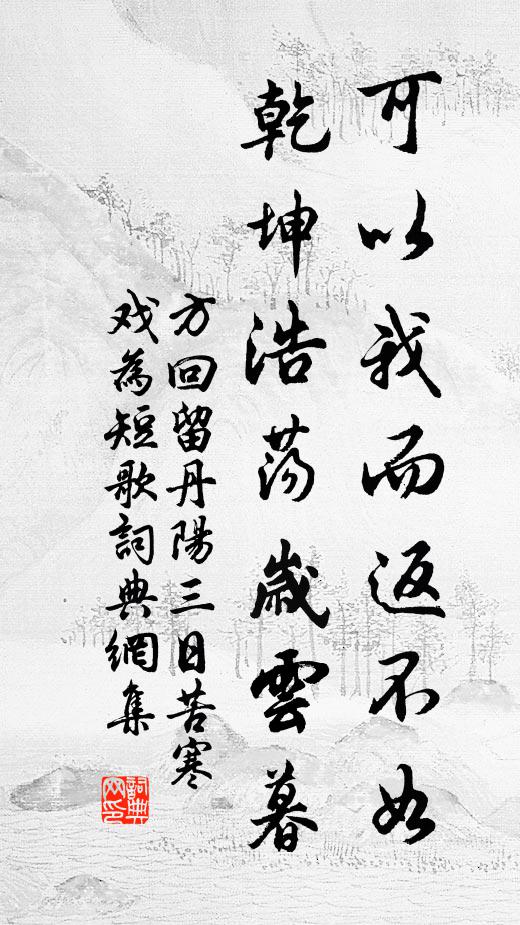 可以我而返不如
乾坤浩荡歲雲暮
方回留丹陽三日苦寒
戏為短歌詞典網集
詞典網印